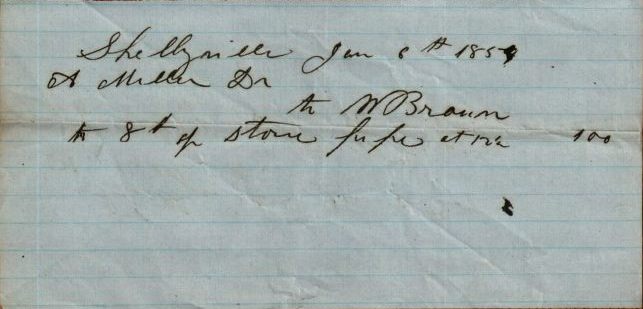 Shellyville Jan 6th 1859
A Miller Dr
to W Braun
to 8 ft of stove pipe at 12½ 100